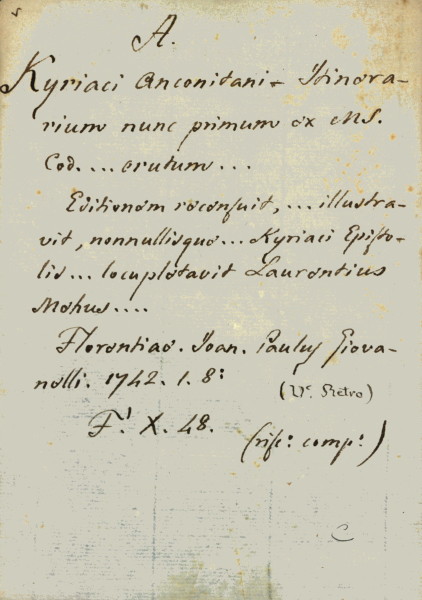 A.
Kyriaci Anconitani Itinera-
rium nunc primum ex MS.
Cod. ... erutum ...
Editionem recensuit, ... illustra-
vit, nonnullisque ... Kyriaci Episto-
lis ... locupletavit Laurentius
Mehus ....
Florentiae. Ioan. Paulus Giova-
nelli. 1742. 1. 8:
(V.e Retro)
F.1 X. 48.
(rife: comp:)
C